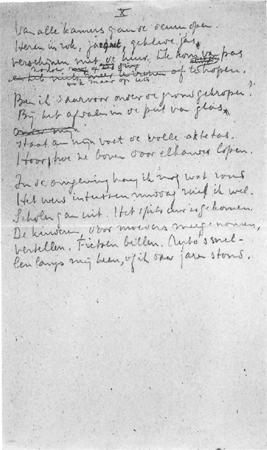 X
Van alle kamers gaan de deuren open.
Heren in rok, jacquet, geklede jas,
verschijnen met de huur. Ik kom pas
af te hopen.
Ben ik daarvoor onder de grond gekropen?
Bij het afdalen in de put van glas,
staat aan mijn voet de volle aktetas.
Hoor hoe ze boven door elkander lopen.
In de omgeving hang ik nog wat rond
Het werd intussen middag zie ik wel.
Scholen gaan uit. Het spitsuur is gekomen.
De kinderen, door moeders meegenomen,
vertellen. Fietsen bellen. Auto's snel-
len langs mij heen, of ik daar jaren stond.